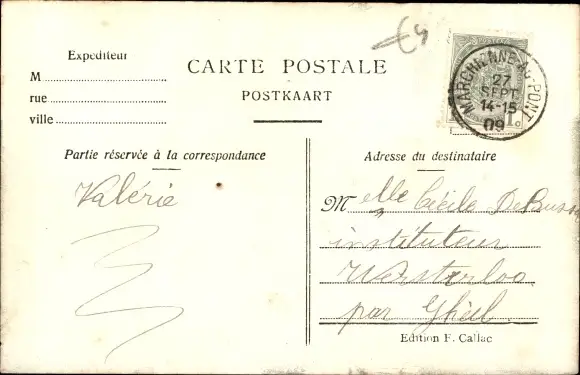 €4
Expéditeur
M
rue
ville
CARTE POSTALE
POSTKAART
MARCHIENNE-AU-PONT
27
SEPT
14-15
09
1c
Partie réservée à la correspondance
Adresse du destinataire
Valérie
Melle Cécile DeBus
instituteur
Westerloo
par Ghéel
Edition F. Callac